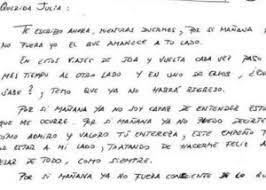 QUERIDA JULIA:
TE ESCRIBO AHORA, MIENTRAS DUERMES, POR SI MAÑANA
NO FUERA YO EL QUE AMANECE A TU LADO.
EN ESTOS VIAJES DE IDA Y VUELTA CADA VEZ PASO
MÁS TIEMPO AL OTRO LADO Y EN UNO DE ELLOS, ¿
SABE?, TEMO QUE YA NO HABRÁ REGRESO.
POR SI MAÑANA YA NO SOY CAPAZ DE ENTENDER ESTO
QUE ME OCURRE. POR SI MAÑANA YA NO PUEDO DECIRTE
CÓMO ADMIRO Y VALORO TU ENTEREZA, ESTE EMPEÑO T
POR ESTAR A MI LADO, TRATANDO DE HACERME FELIZ A
PESAR DE TODO, COMO SIEMPRE.
POR SI MAÑANA YA NO FUERA CONSCIENTE DE LO